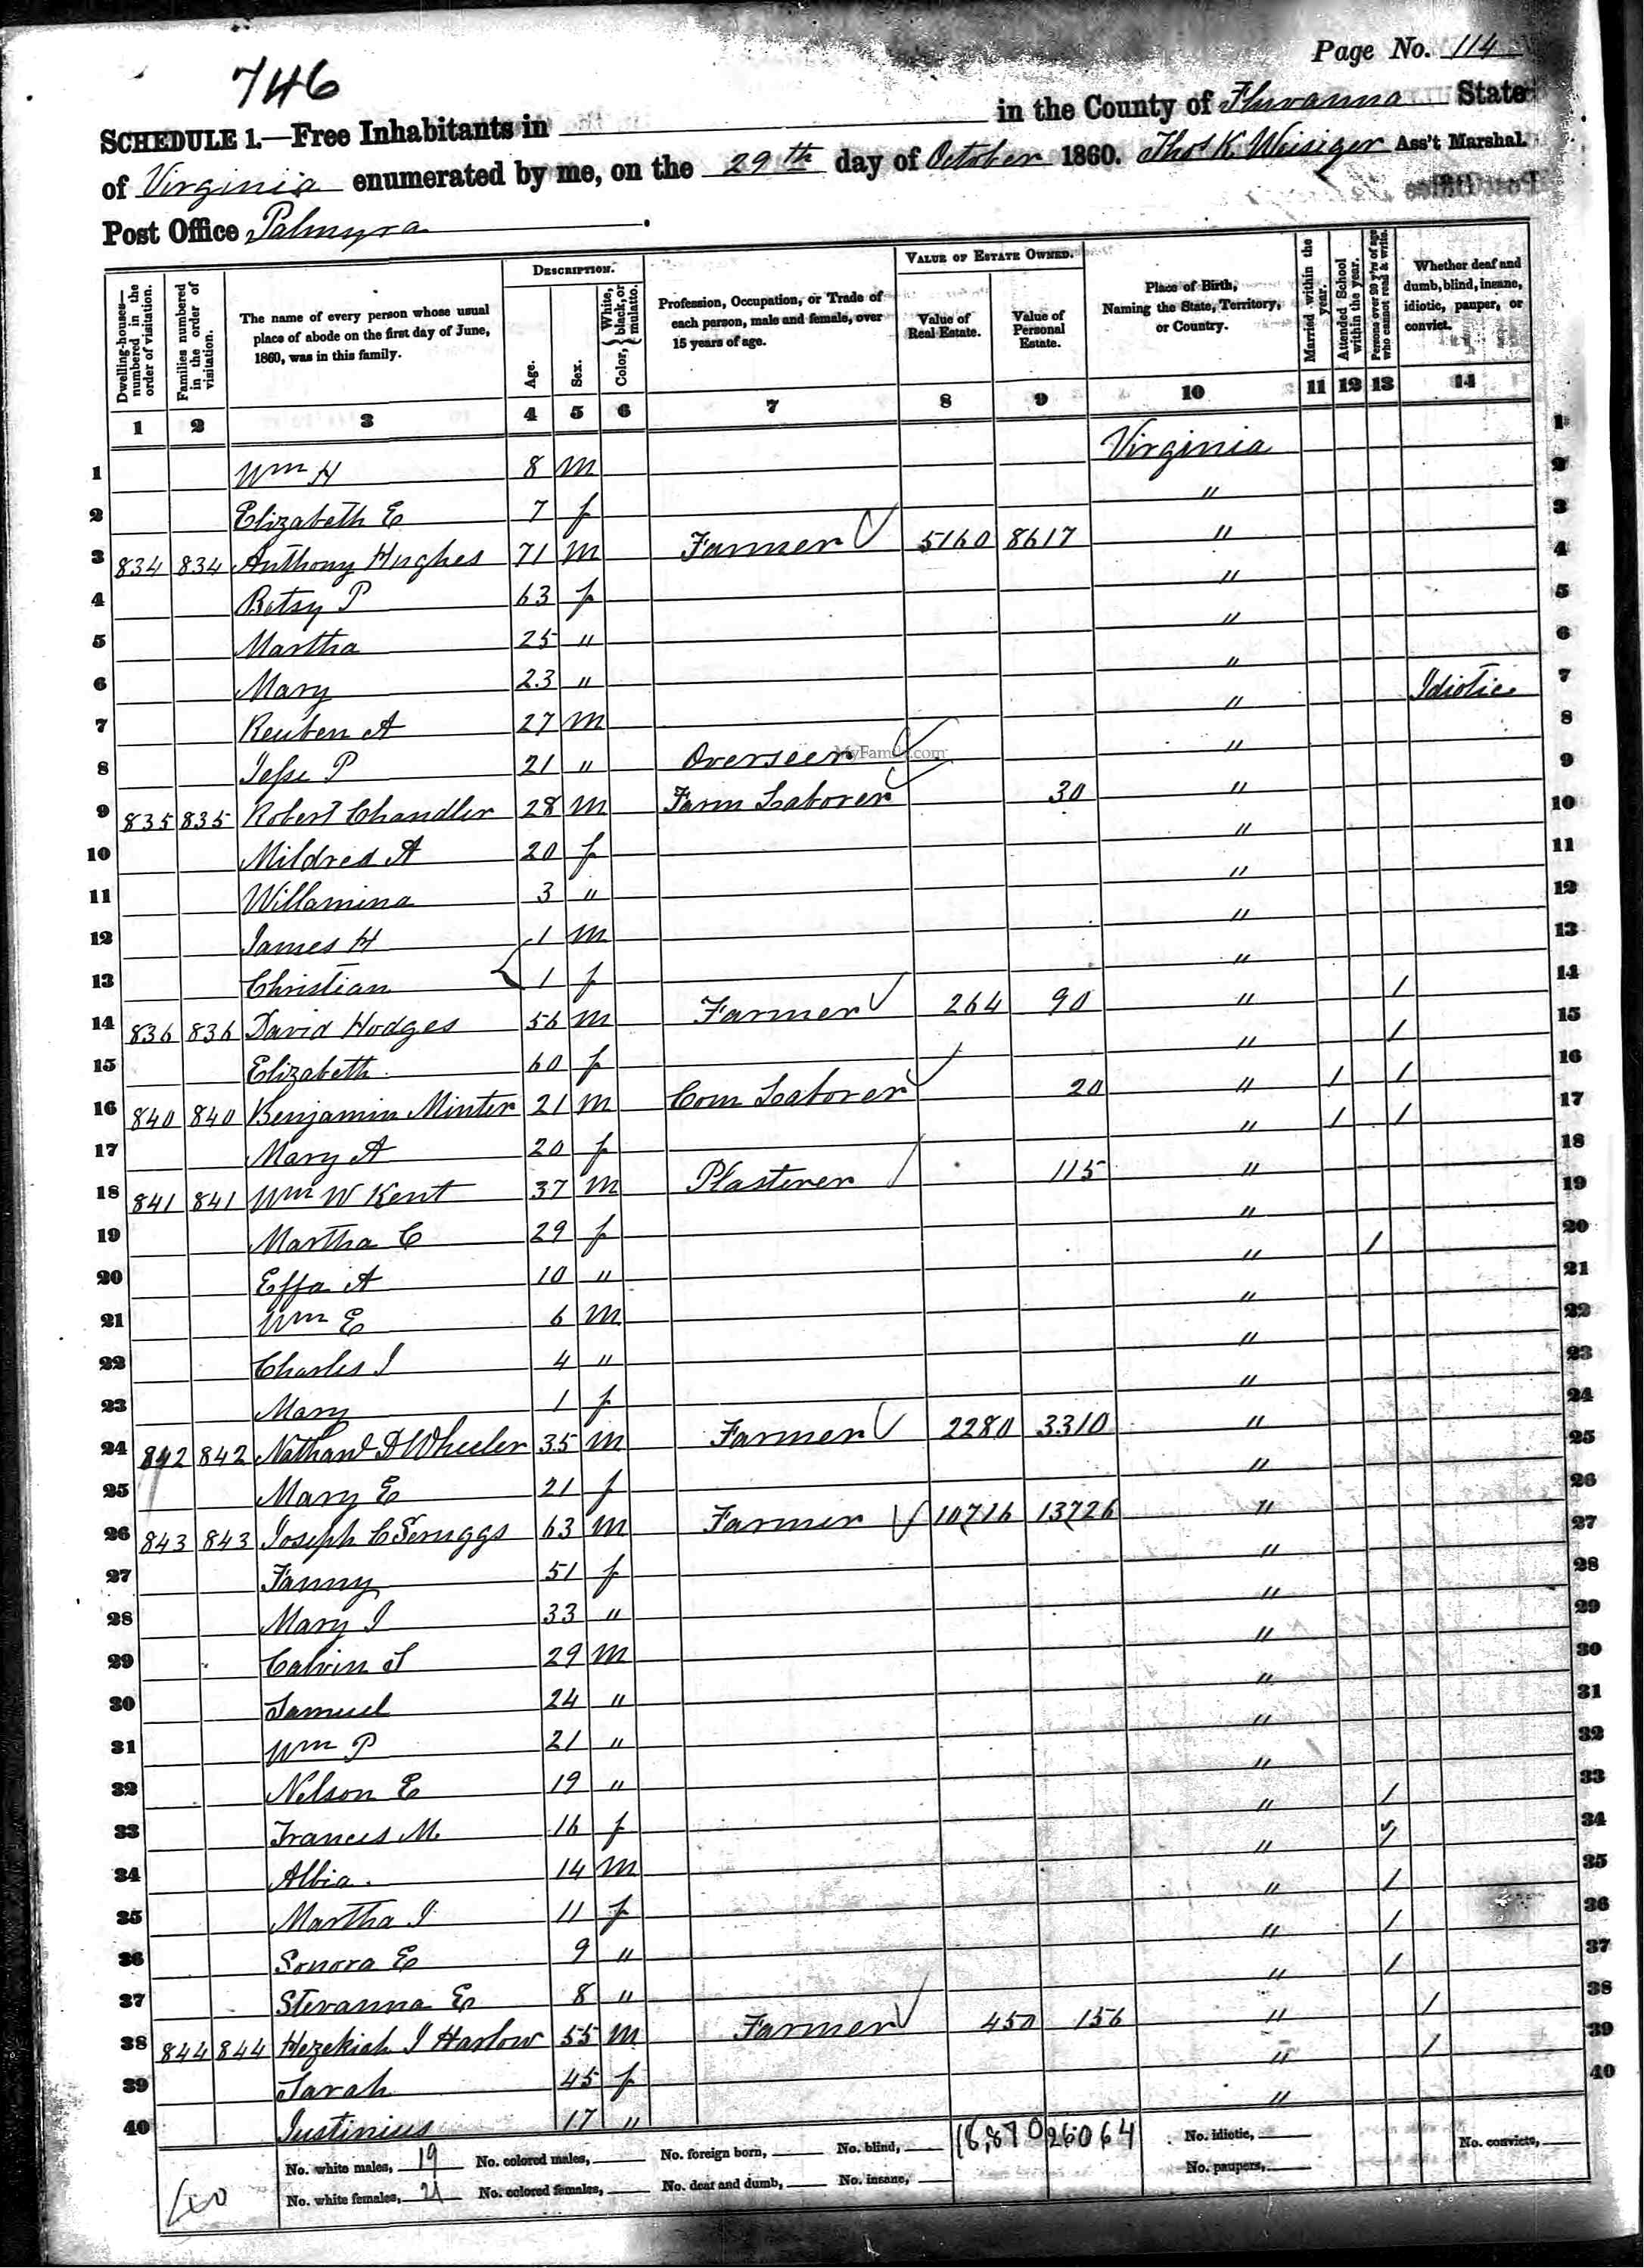 746
Page No. 114
SCHEDULE 1.—Free Inhabitants in in the County of Fluvanna State
of Virginia enumerated by me, on the 29th day of October 1860. Thos K. Weisiger Ass't Marshal.
Post Office Palmyra.
Dwelling-houses—numbered in the order of visitation. Families numbered in the order of visitation. The name of every person whose usual place of abode on the first day of June, 1860, was in this family. DESCRIPTION. Age. Sex. Color, {White, black, or mulatto. Profession, Occupation, or Trade of each person, male and female, over 15 years of age. VALUE OF ESTATE OWNED. Value of Real Estate. Value of Personal Estate. Place of Birth, Naming the State, Territory, or Country. Married within the year. Attended School within the year. Persons over 20 y'rs of age who cannot read & write. Whether deaf and dumb, blind, insane, idiotic, pauper, or convict.
1 2 3 4 5 6 7 8 9 10 11 12 13 14
1 Wm H 8 m Virginia 1
2 Elizabeth E 7 f " 2
3 834 834 Anthony Hughes 71 m Farmer 5160 8617 " 3
4 Betsy P 63 f " 4
5 Martha 25 " " 5
6 Mary 23 " " 6
7 Reuben A 27 m " Idiotic 7
8 Jesse P 21 " Overseer " 8
MyFamily.com
9 835 835 Robert Chandler 28 m Farm Laborer 30 " 9
10 Mildred A 20 f " 10
11 Willamina 3 " " 11
12 James H 1 m " 12
13 Christian 1 f " 13
14 836 836 David Hodges 56 m Farmer 264 90 " / 14
15 Elizabeth 60 f " / 15
16 840 840 Benjamin Minter 21 m Com Laborer 20 " / / 16
17 Mary A 20 f " / / 17
18 841 841 Wm W Kent 37 m Plasterer 115 " 18
19 Martha C 29 f " 19
20 Effa A 10 " " / 20
21 Wm E 6 m " 21
22 Charles J 4 " " 22
23 Mary 1 f " 23
24 842 842 Nathan D Wheeler 35 m Farmer 2280 3310 " 24
25 Mary E 21 f " 25
26 843 843 Joseph C Scruggs 63 m Farmer 10,716 13726 " 26
27 Fanny 51 f " 27
28 Mary J 33 " " 28
29 Calvin S 29 m " 29
30 Samuel 24 " " 30
31 Wm P 21 " " 31
32 Nelson E 19 " " 32
33 Frances M. 16 f " / 33
34 Albia 14 m " 34
35 Martha J 11 f " / 35
36 Sonora E 9 " " / 36
37 Stevanna E 8 " " / 37
38 844 844 Hezekiah J Harlow 55 m Farmer 450 156 " / 38
39 Sarah 45 f " / 39
40 Justinius 17 " " 40
No. white males, 19 No. colored males, No. foreign born, No. blind, 18,870 26064 No. idiotic, No. convicts,
40 No. white females, 21 No. colored females, No. deaf and dumb, No. insane, No. paupers,